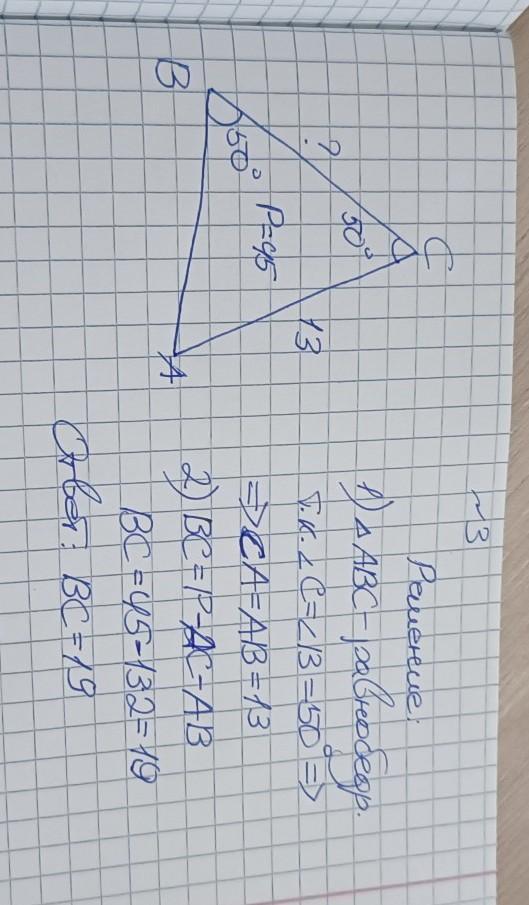 ~3
Решение:
1) △ABC - равнобедр.
т.к. ∠C=∠B=50° ⇒
⇒ CA=AB=13
2) BC=P-AC-AB
BC=45-132=19
Ответ: BC=19
B
?
C
50°
50°
P=45
13
A